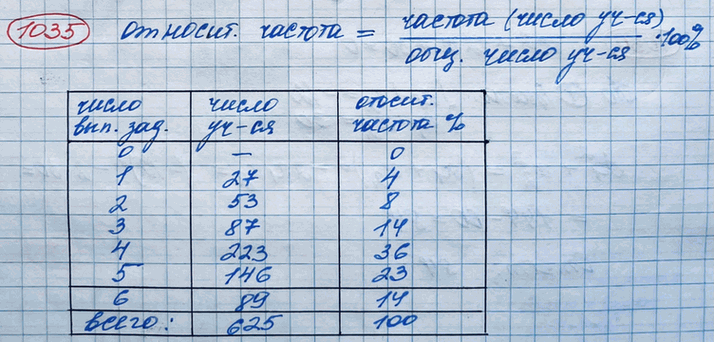 1035 относит. частота = частота (число уч-ся) / общ. число уч-ся · 100%
число вып. зад. число уч-ся относит. частота %
0 — 0
1 27 4
2 53 8
3 87 14
4 223 36
5 146 23
6 89 14
всего: 625 100